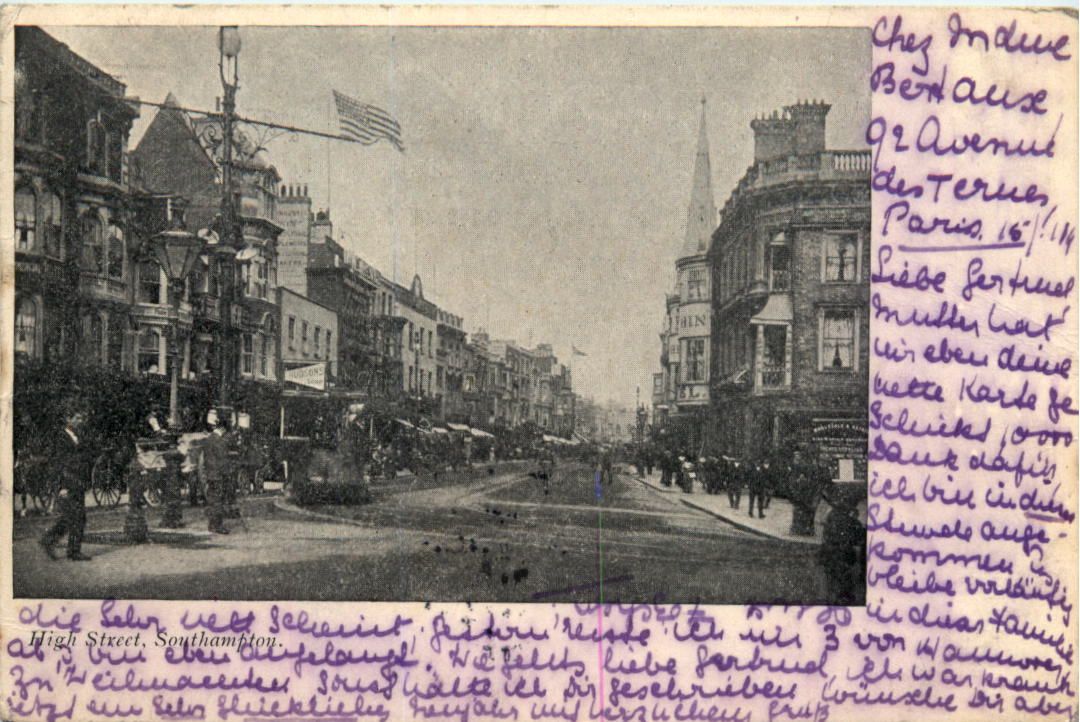 Chez Mdme
Berthaux
92 Avenue
des Ternes
Paris. 15/1.
Liebe Gertrud
Mutter hat
mir eben deine
nette Karte ge
schickt, 1000
Dank dafür,
ich bin in dieser
Stunde ange-
kommen u.
bleibe vorläufig
in dieser Familie
die sehr nett scheint, gestern reiste ich um 3 von Hannover
ab u. bin eben angelangt. Wie geht's liebe Gertrud, ich war krank
zu Weihnachten sonst hätte ich Dir geschrieben, wünsche Dir aber
jetzt ein sehr glückliches Neujahr mit herzlichem Gruß
High Street, Southampton.
HUDSONS